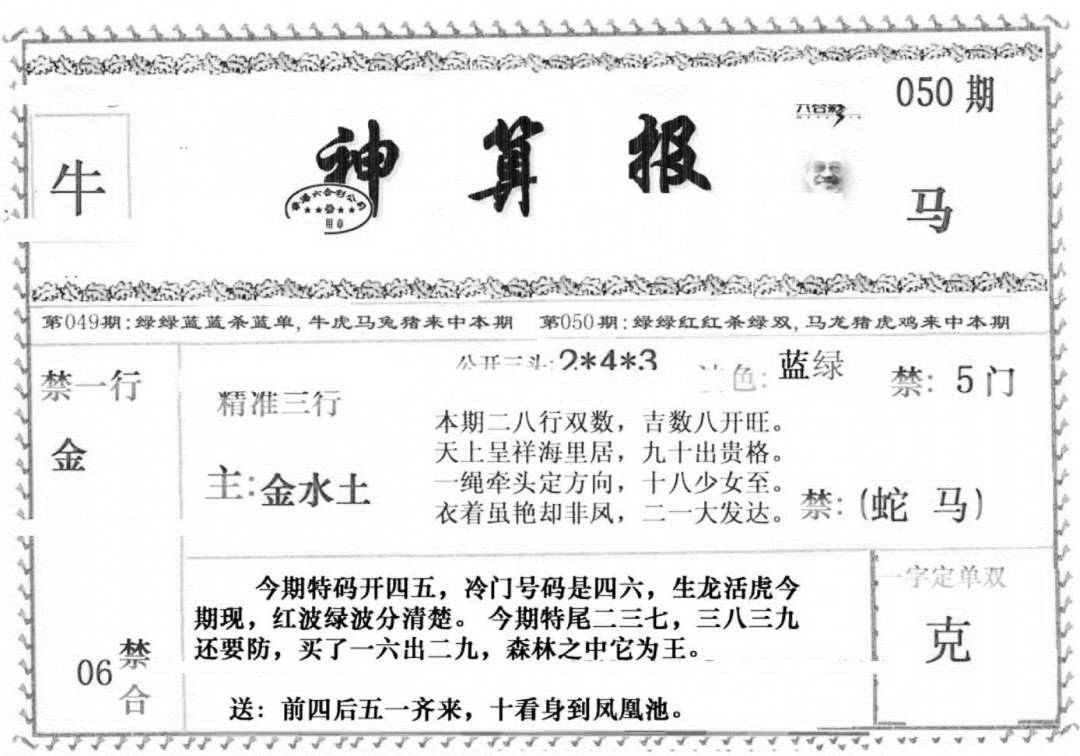 050期
六合彩
牛
神算报
香港六合彩公司
用章
马
第049期:绿绿蓝蓝杀蓝单,牛虎马兔猪来中本期 第050期:绿绿红红杀绿双,马龙猪虎鸡来中本期
禁一行
金
公开三头:2*4*3
色:蓝绿
禁:5门
精准三行
主:金水土
本期二八行双数，吉数八开旺。
天上呈祥海里居，九十出贵格。
一绳牵头定方向，十八少女至。
衣着虽艳却非凤，二一大发达。
禁:(蛇 马)
今期特码开四五，冷门号码是四六，生龙活虎今
期现，红波绿波分清楚。今期特尾二三七，三八三九
还要防，买了一六出二九，森林之中它为王。
送：前四后五一齐来，十看身到凤凰池。
06禁合
一字定单双
克